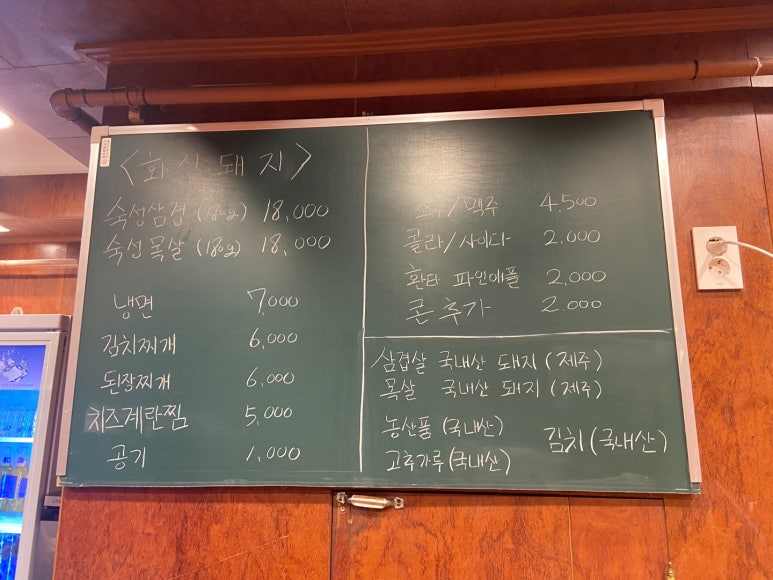 <화산돼지>
숙성삼겹 (180g) 18,000
숙성목살 (180g) 18,000
냉면 7,000
김치찌개 6,000
된장찌개 6,000
치즈계란찜 5,000
공기 1,000
소주/맥주 4.500
콜라/사이다 2,000
환타 파인애플 2,000
콘추가 2.000
삼겹살 국내산 돼지 (제주)
목살 국내산 돼지 (제주)
농산물 (국내산)
김치 (국내산)
고추가루 (국내산)